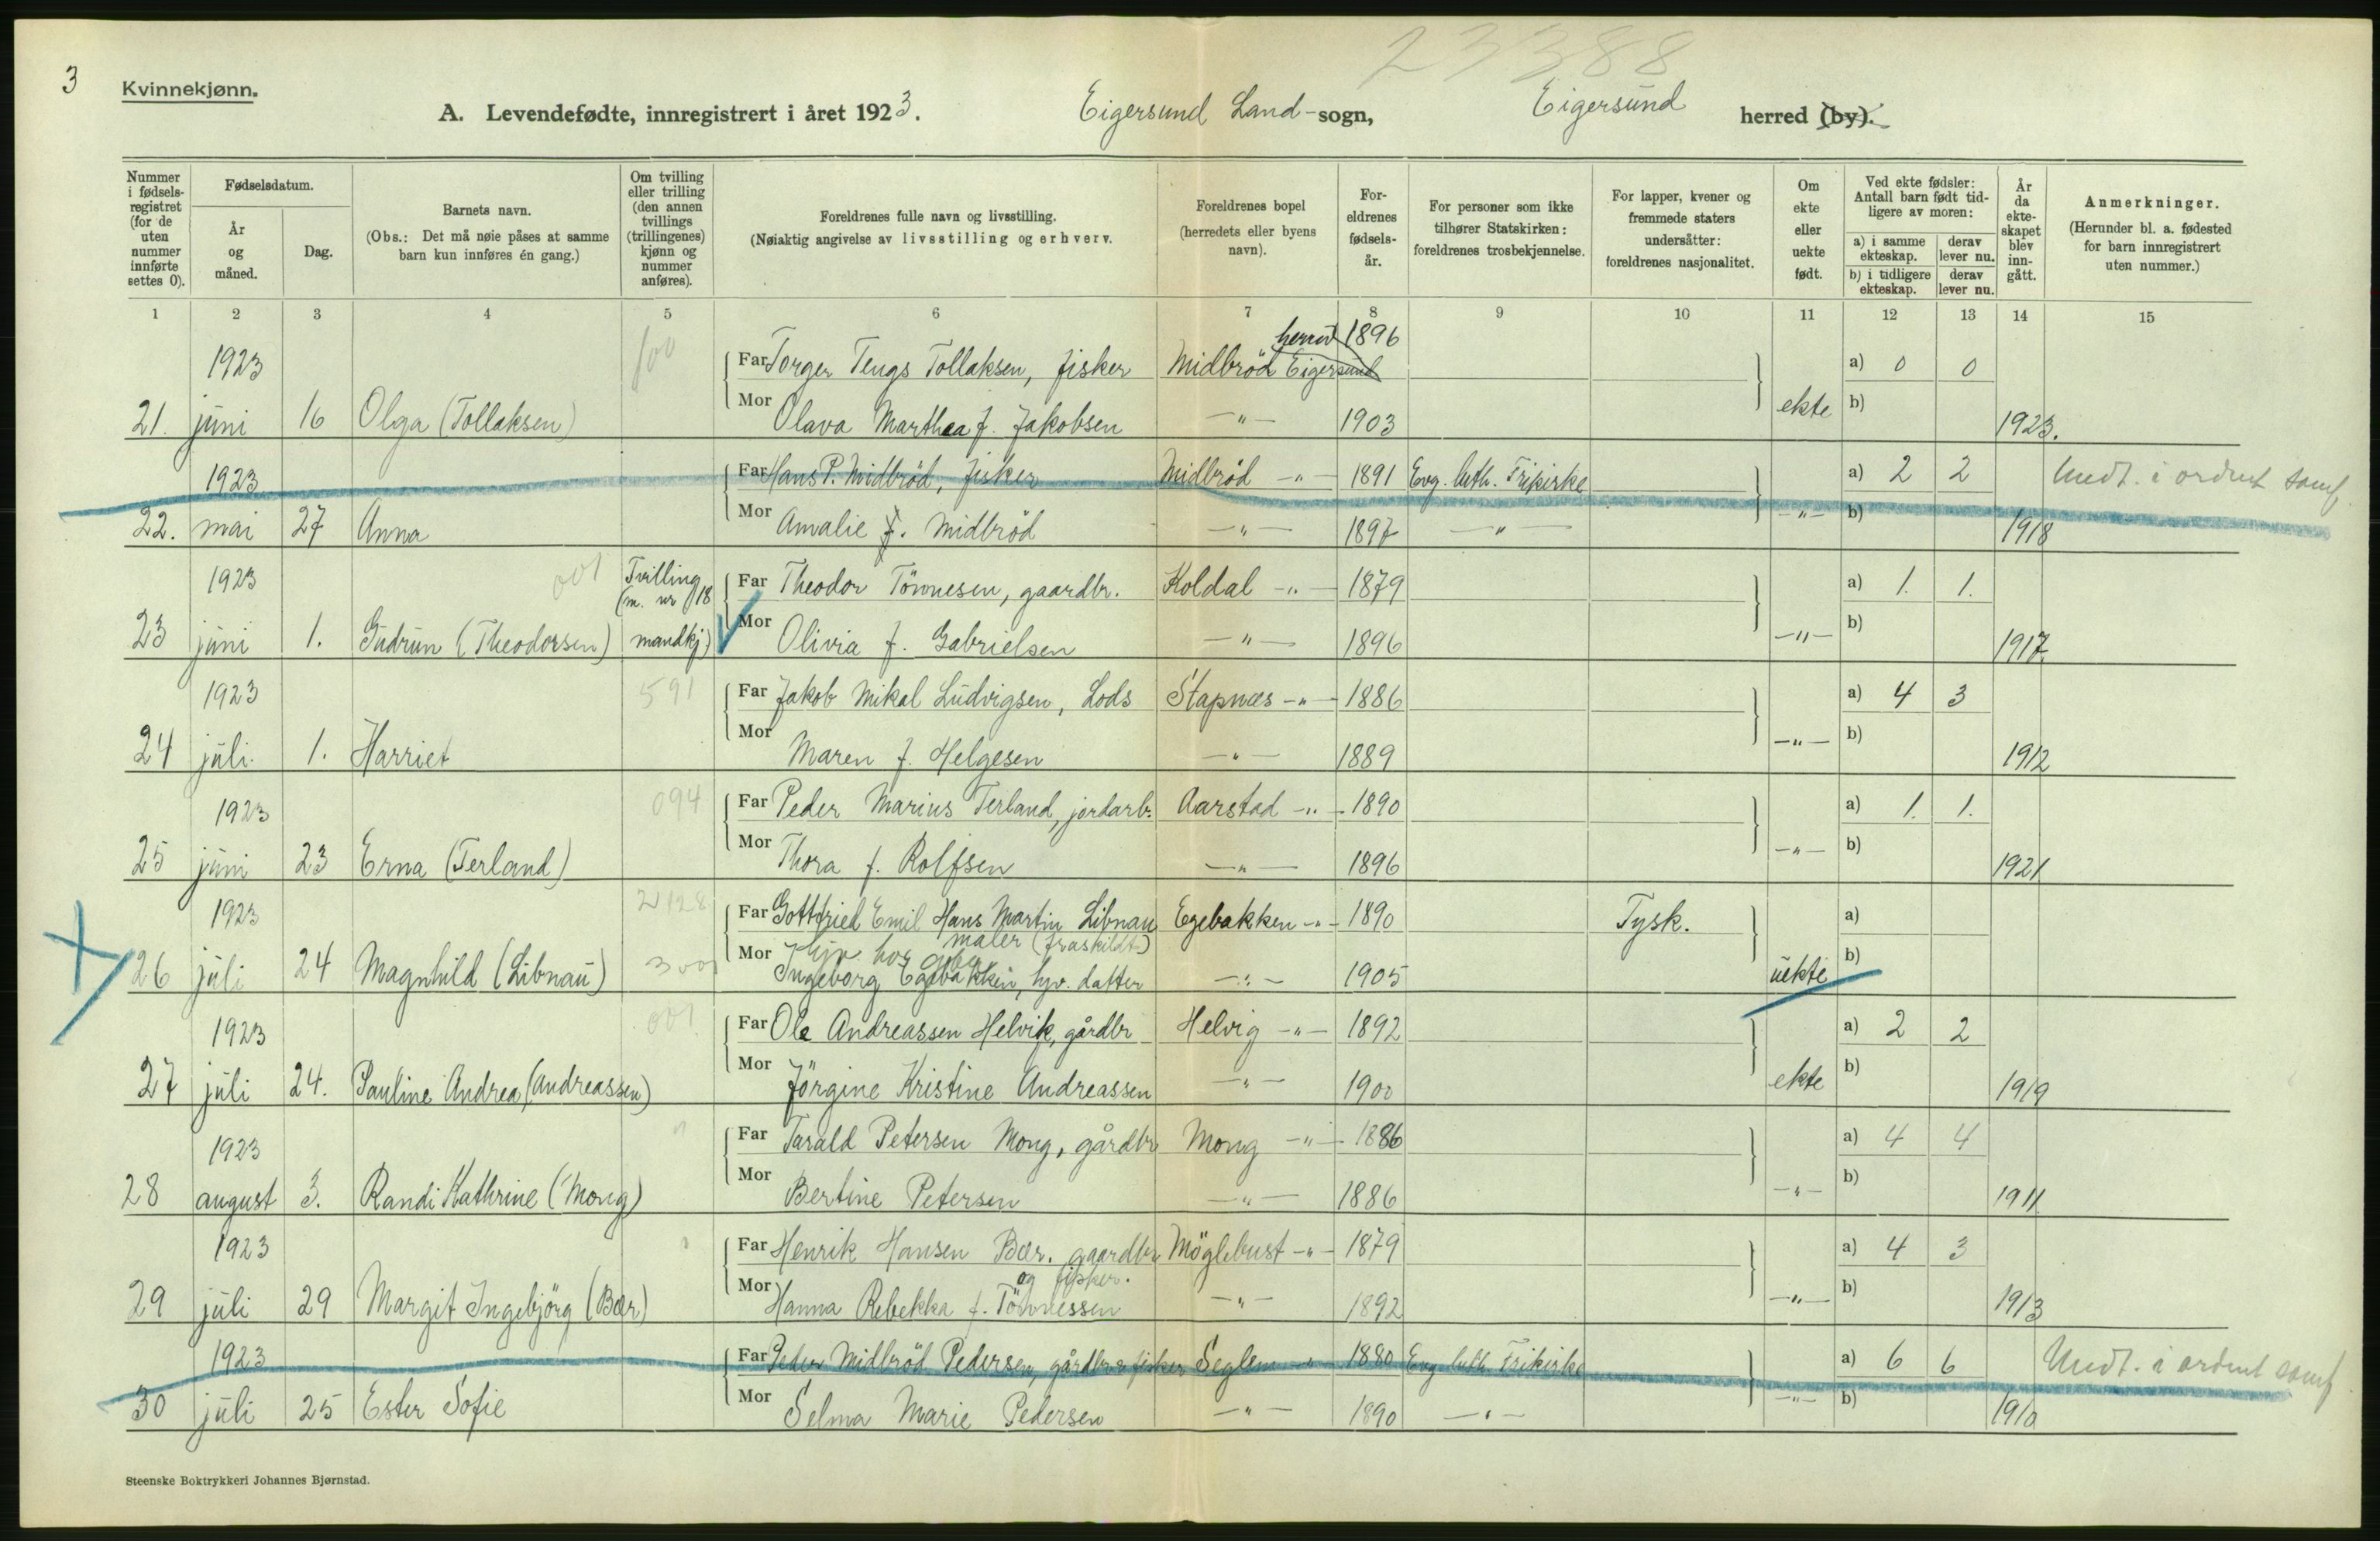 3
Kvinnekjønn.
23388
A. Levendefødte, innregistrert i året 1923. Eigersund Land-sogn, Eigersund herred (by).
Nummer i fødsels-registret (for de uten nummer innførte settes 0).
Fødselsdatum.
År og måned.
Dag.
Barnets navn.
(Obs.: Det må nøie påses at samme barn kun innføres én gang.)
Om tvilling eller trilling (den annen tvillings (trillingenes) kjønn og nummer anføres).
Foreldrenes fulle navn og livsstilling.
(Nøiaktig angivelse av livsstilling og erhverv.
Foreldrenes bopel (herredets eller byens navn).
For-eldrenes fødsels-år.
For personer som ikke tilhører Statskirken: foreldrenes trosbekjennelse.
For lapper, kvener og fremmede staters undersåtter: foreldrenes nasjonalitet.
Om ekte eller uekte født.
Ved ekte fødsler: Antall barn født tid-ligere av moren:
a) i samme ekteskap.
derav lever nu.
b) i tidligere ekteskap.
derav lever nu.
År da ekte-skapet blev inn-gått.
Anmerkninger.
(Herunder bl. a. fødested for barn innregistrert uten nummer.)
1 2 3 4 5 6 7 8 9 10 11 12 13 14 15
1923 Far Torger Tengs Tollaksen, fisker Midbröd Eigersund herred 1896 a) 0 0
21. juni 16 Olga (Tollaksen) Mor Olava Marthea f. Jakobsen —"— 1903 ekte b) 1923.
1923 Far Hans P. Midbröd, fisker Midbröd —"— 1891 Evg. luth. Frikirke a) 2 2 Undt. i ordnet samf.
22. mai 27 Anna Mor Amalie f. Midbröd —"— 1897 —"— —"— b) 1918
1923 001 Tvilling (m. nr 18 mandkj) Far Theodor Tönnesen, gaardbr. Koldal —"— 1879 a) 1. 1.
23 juni 1. Gudrun (Theodorsen) Mor Olivia f. Gabrielsen —"— 1896 —"— b) 1917
1923 591 Far Jakob Mikal Ludvigsen, Lods Stapnæs —"— 1886 a) 4 3
24 juli 1. Harriet Mor Maren f. Helgesen —"— 1889 —"— b) 1912
1923 094 Far Peder Marius Terland, jordarb. Aarstad —"— 1890 a) 1. 1.
25 juni 23 Erna (Terland) Mor Thora f. Rolfsen —"— 1896 —"— b) 1921
1923 Far Gottfried Emil Hans Martin Libnau Egebakken —"— 1890 Tysk. a)
maler (fraskildt)
26 juli 24 Magnhild (Libnau) Mor Ingeborg Egebakken, hjv. datter —"— 1905 uekte b)
1923 001 Far Ole Andreassen Helvik, gårdbr Helvig —"— 1892 a) 2 2
27 juli 24. Pauline Andrea (Andreassen) Mor Jörgine Kristine Andreassen —"— 1900 ekte b) 1919
1923 " Far Tarald Petersen Mong, gårdbr Mong —"— 1886 a) 4 4
28 august 3. Randi Kathrine (Mong) Mor Bertine Petersen —"— 1886 —"— b) 1911
1923 Far Henrik Hansen Bær. gaardbr og fisker. Möglebust —"— 1879 a) 4 3
29 juli 29 Margit Ingebjörg (Bær) Mor Hanna Rebekka f. Tönnessen —"— 1892 —"— b) 1913
1923 Far Peder Midbröd Pedersen, gårdbr o fisker Seglem " 1880 Evg luth. Frikirke a) 6 6 Undt. i ordnet samf
30 juli 25 Ester Sofie Mor Selma Marie Pedersen —"— 1890 —"— —"— b) 1910
Steenske Boktrykkeri Johannes Bjørnstad.